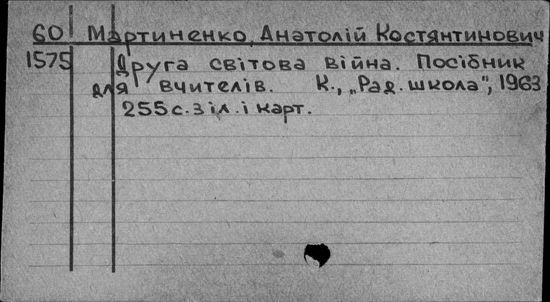 60 Мартиненко, Анатолій Костянтинович
1575 Друга світова війна. Посібник
для вчителів. К., „Рад. школа", 1963
255 с. з іл. і карт.